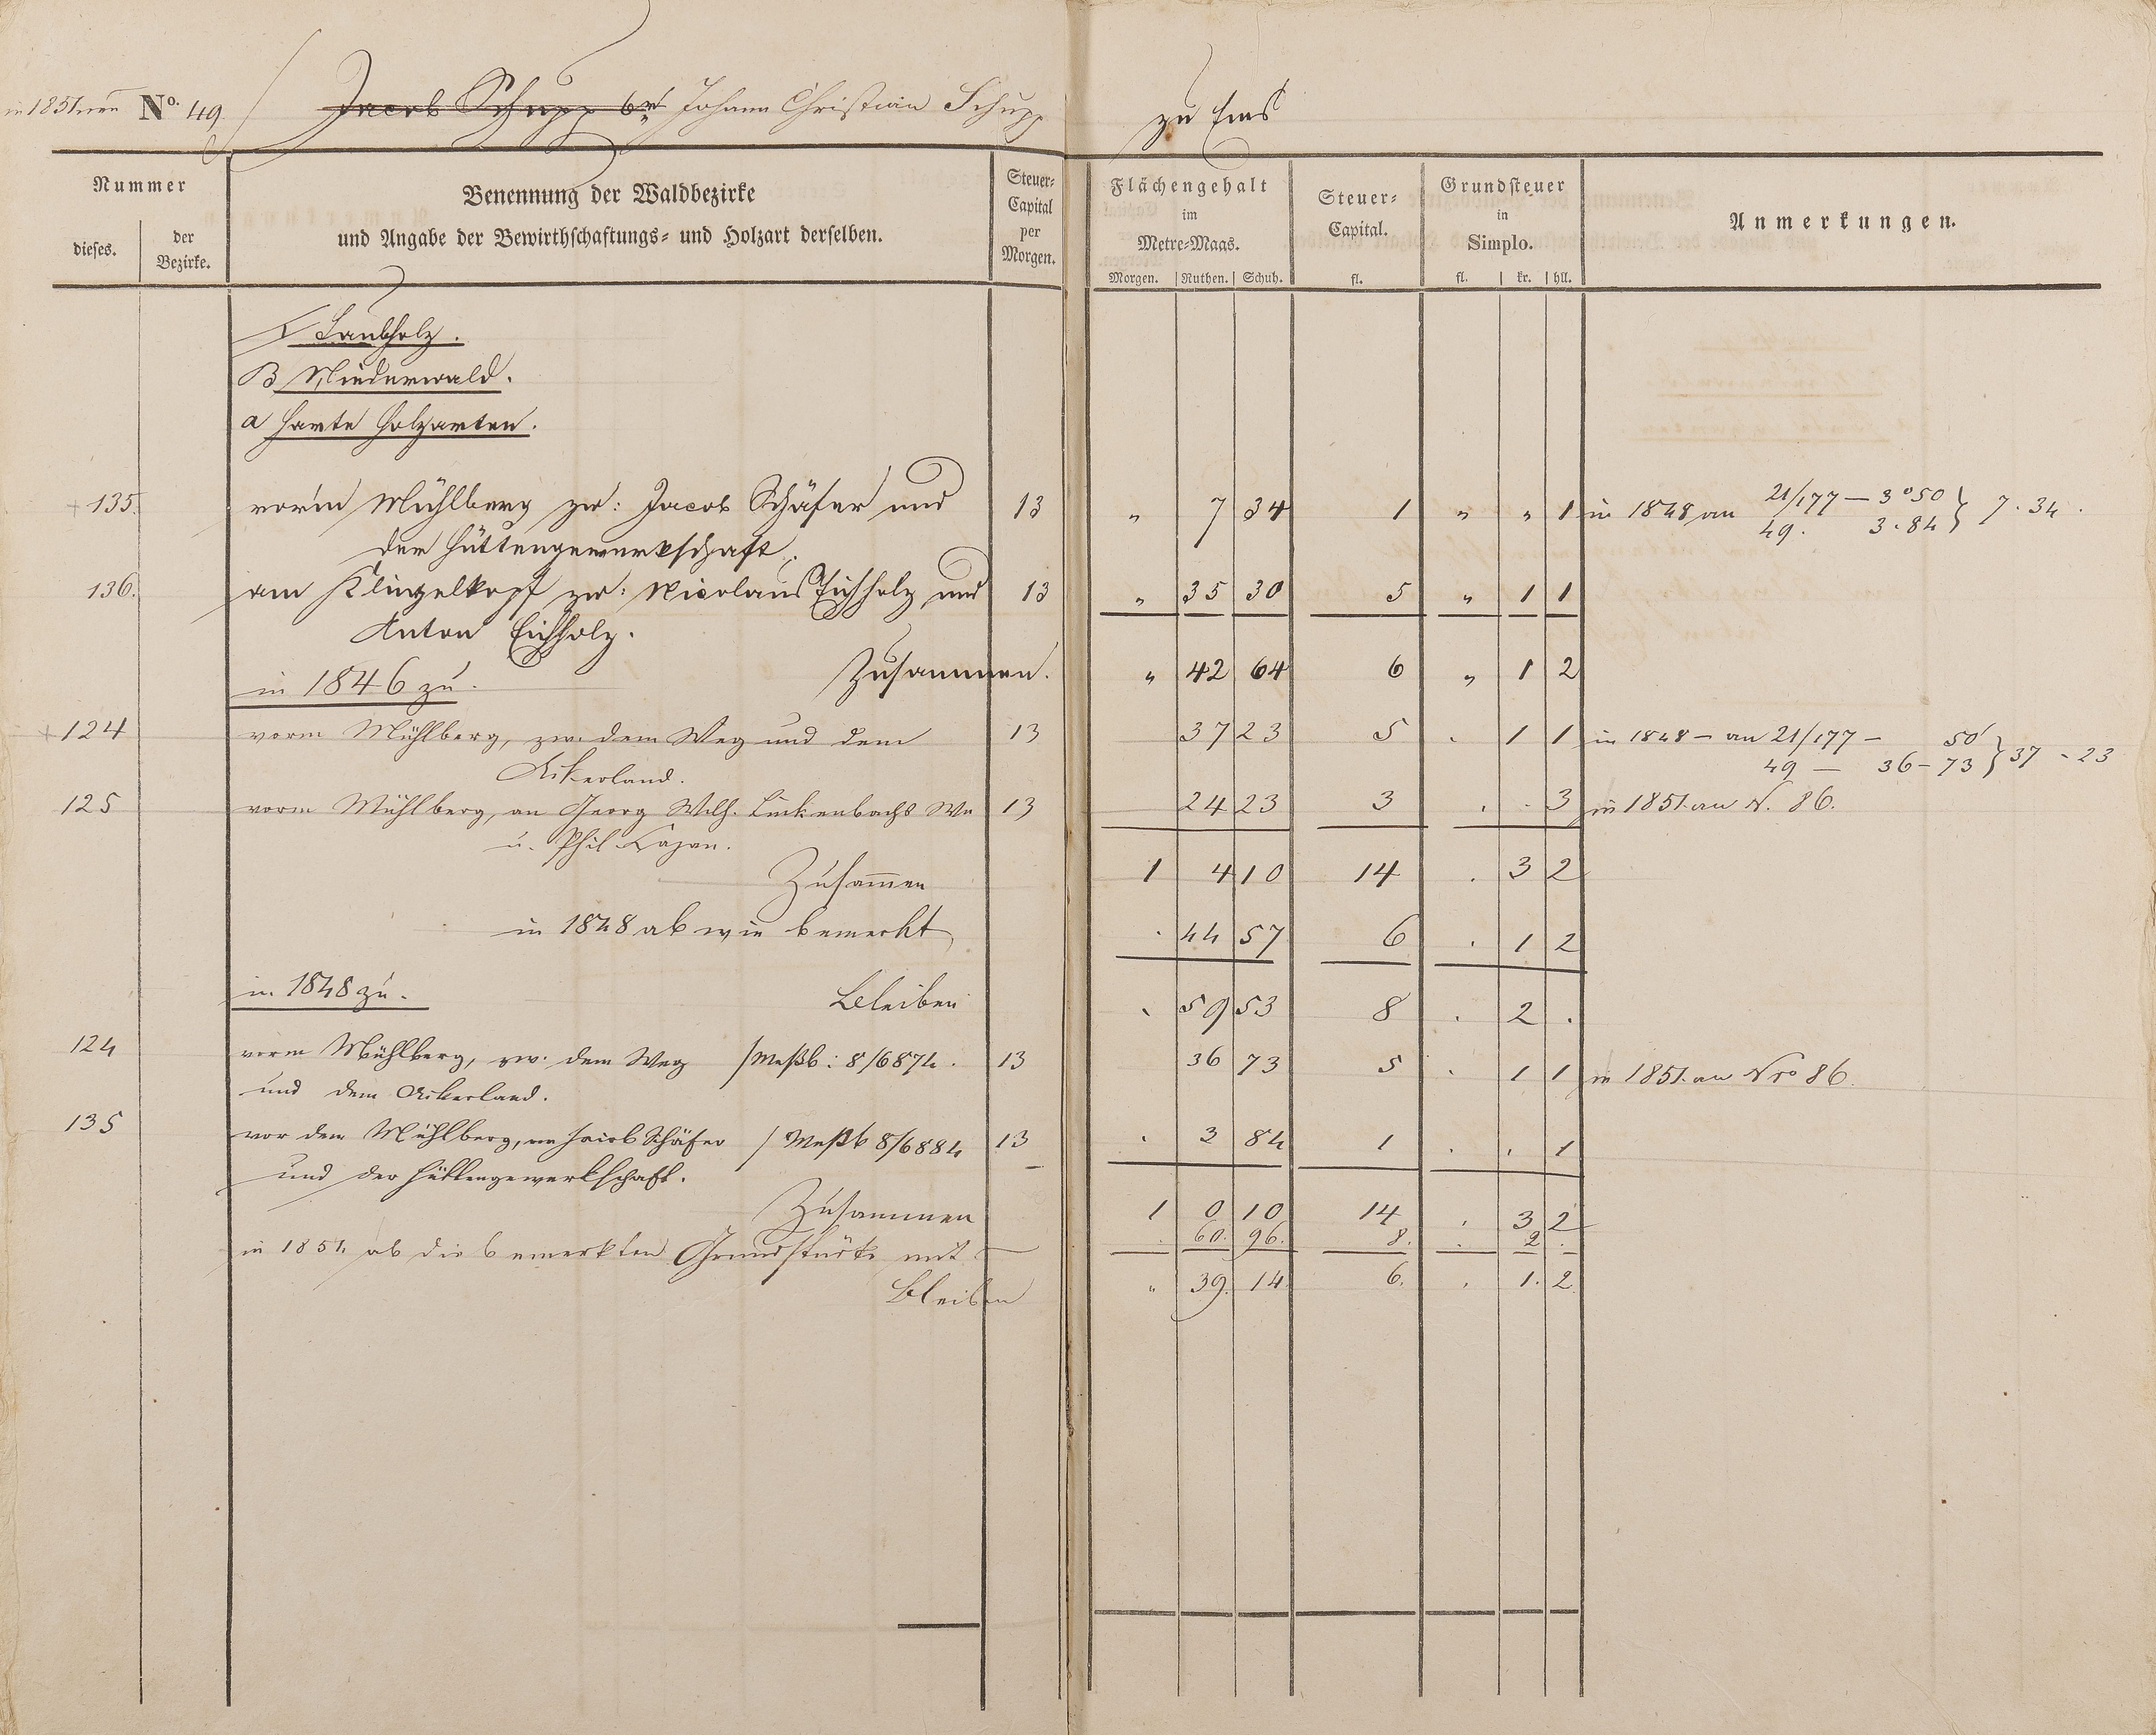 in 1851. neu No. 49. Jacob Schupp 6r Johann Christian Schupp zu Ems
Nummer
dieses.
der Bezirke.
Benennung der Waldbezirke
und Angabe der Bewirthschaftungs- und Holzart derselben.
Steuer-
Capital
per
Morgen.
Flächengehalt
im
Metre-Maas.
Morgen. Ruthen. Schuh.
Steuer-
Capital.
fl.
Grundsteuer
in
Simplo.
fl. kr. hll.
Anmerkungen.
I Laubholz.
B Niederwald.
a Harte Holzarten.
135. vorm Mühlberg zw: Jacob Schäfer und 13 " 7 34 1 " " 1 in 1848 an 21/177 — 3° 50 } 7. 34.
der Hüttengewerkschaft. 49. 3. 84
136. am Klingelkopf zw: Nicolaus Eichholz und 13 " 35 30 5 " 1 1
Anton Eichholz.
Zusammen. " 42 64 6 " 1 2
in 1846 zu.
124 vorm Mühlberg, zw. dem Weg und dem 13 37 23 5 . 1 1 in 1848 — an 21/177 — 50 } 37 - 23
Ackerland. 49 — 36 - 73
125 vorm Mühlberg, an Georg Wilh. Linkenbachs We 13 24 23 3 . . 3 in 1851. an N. 86.
u. Phil.
Zusammen 1 4 10 14 . 3 2
in 1848 ab wie bemerkt . 44 57 6 . 1 2
Bleiben . 59 53 8 . 2 .
in 1848 zu.
124 vorm Mühlberg, zw. dem Weg / Meßb: 8/6874. 13 36 73 5 . 1 1 in 1851. an Nro 86.
und dem Ackerland.
135 vor dem Mühlberg, an Jacob Schäfer / Meßb 8/6884 13 . 3 84 1 . . 1
und der Hüttengewerkschaft.
Zusammen 1 0 10 14 . 3 2
in 1851. ab die bemerkten Grundstücke mit . 60. 96. 8. . 2 .
Bleiben " 39. 14. 6. . 1. 2.